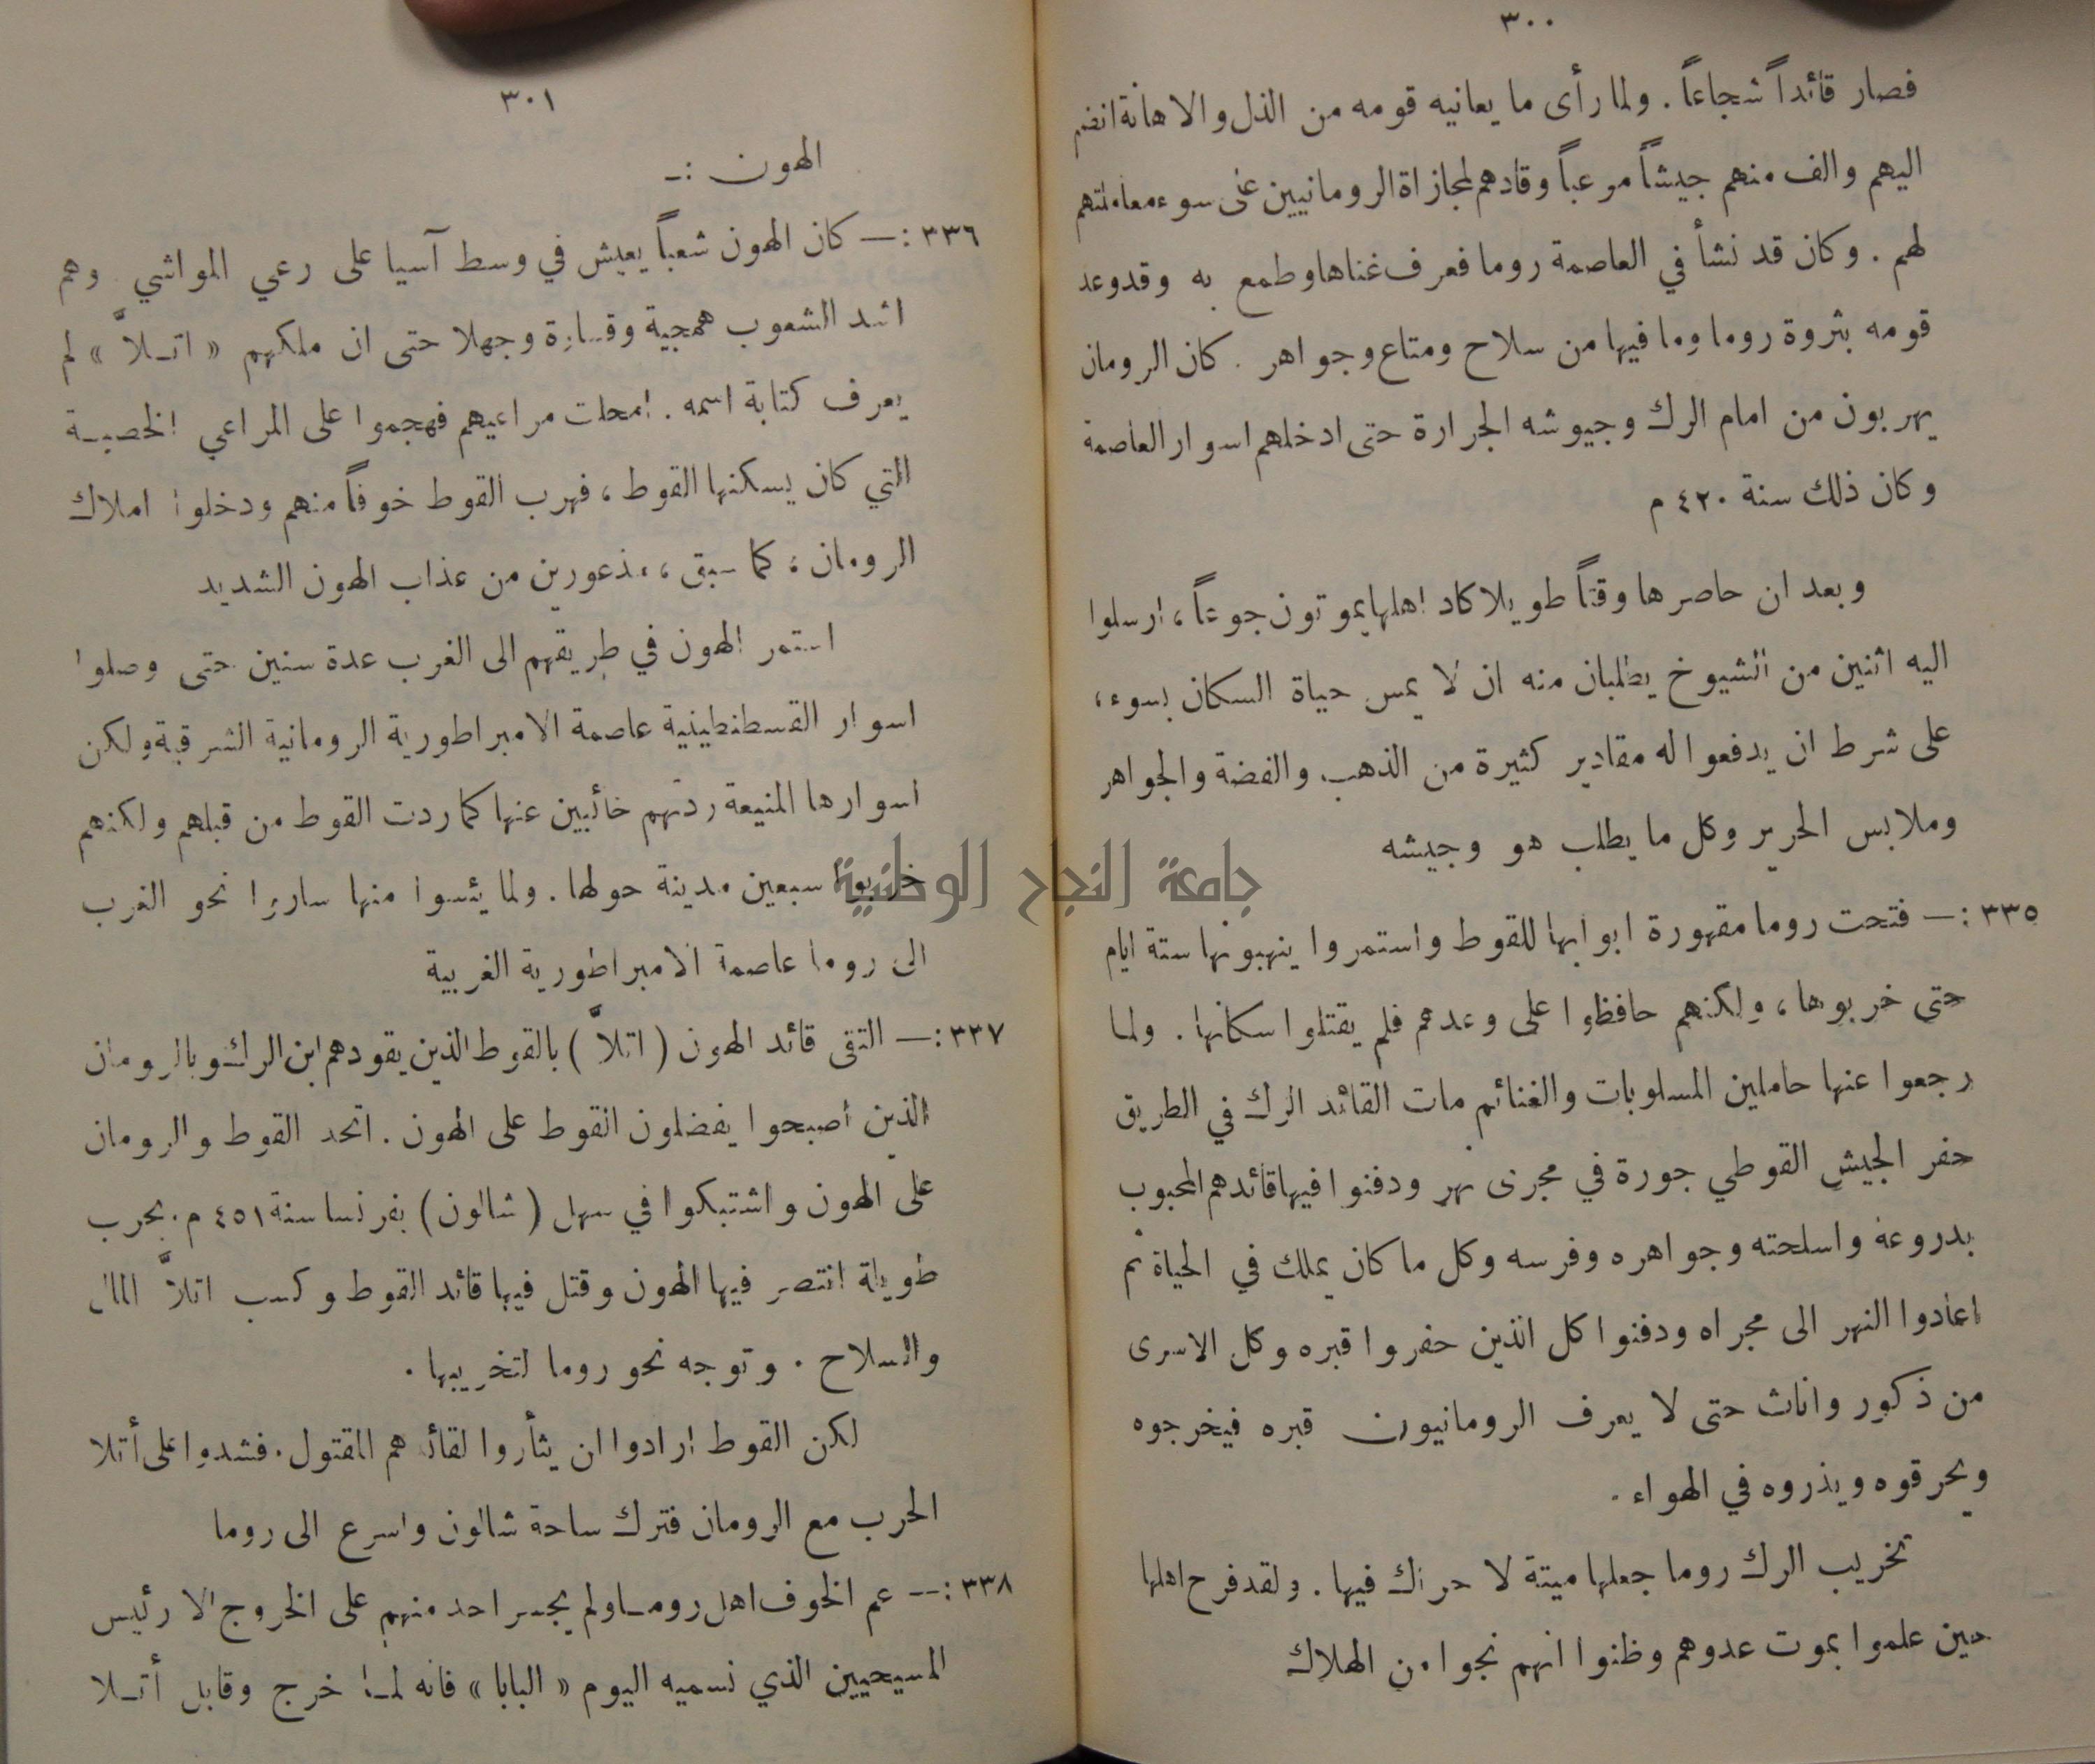 ٣٠٠
فصار قائداً شجاعاً . ولما رأى ما يعانيه قومه من الذل والاهانة انضم
اليهم والف منهم جيشاً مرعباً وقادهم لمجازاة الرومانيين على سوء معاملتهم
لهم . وكان قد نشأ في العاصمة روما فعرف غناها وطمع به وقد وعد
قومه بثروة روما وما فيها من سلاح ومتاع وجواهر . كان الرومان
يهربون من امام الرك وجيوشه الجرارة حتى ادخلهم اسوار العاصمة
وكان ذلك سنة ٤٢٠ م
وبعد ان حاصرها وقتاً طويلا كاد اهلها يموتون جوعاً ، ارسلوا
اليه اثنين من الشيوخ يطلبان منه ان لا يمس حياة السكان بسوء ،
على شرط ان يدفعوا له مقادير كثيرة من الذهب والفضة والجواهر
وملابس الحرير وكل ما يطلب هو وجيشه
٣٣٥ :— فتحت روما مقهورة ابوابها للقوط واستمروا ينهبونها ستة ايام
حتى خربوها ، ولكنهم حافظوا على وعدهم فلم يقتلوا سكانها . ولما
رجعوا عنها حاملين المسلوبات والغنائم مات القائد الرك في الطريق
حفر الجيش القوطي جورة في مجرى نهر ودفنوا فيها قائدهم المحبوب
بدروعه واسلحته وجواهره وفرسه وكل ما كان يملك في الحياة ثم
اعادوا النهر الى مجراه ودفنوا كل الذين حفروا قبره وكل الاسرى
من ذكور واناث حتى لا يعرف الرومانيون قبره فيخرجوه
ويحرقوه ويذروه في الهواء .
تخريب الرك روما جعلها ميتة لا حراك فيها . ولقد فرح اهلها
حين علموا بموت عدوهم وظنوا انهم نجوا من الهلاك
٣٠١
الهون :ـ
٣٣٦ :— كان الهون شعباً يعيش في وسط آسيا على رعي المواشي وهم
اشد الشعوب همجية وقذارة وجهلا حتى ان ملكهم « اتـلاّ » لم
يعرف كتابة اسمه . امحلت مراعيهم فهجموا على المراعي الخصبـة
التي كان يسكنها القوط ، فهرب القوط خوفاً منهم ودخلوا املاك
الرومان ، كما سبق ، مذعورين من عذاب الهون الشديد
استمر الهون في طريقهم الى الغرب عدة سنين حتى وصلوا
اسوار القسطنطينية عاصمة الامبراطورية الرومانية الشرقية ولكن
اسوارها المنيعة ردتهم خائبين عنها كما ردت القوط من قبلهم ولكنهم
خربوا سبعين مدينة حولها . ولما يئسوا منها ساروا نحو الغرب
الى روما عاصمة الامبراطورية الغربية
٣٣٧ :— التقى قائد الهون ( اتلاّ ) بالقوط الذين يقودهم ابن الرك وبالرومان
الذين اصبحوا يفضلون القوط على الهون . اتحد القوط والرومان
على الهون واشتبكوا في سهل ( شالون ) بفرنسا سنة ٤٥١ م . بحرب
طويلة انتصر فيها الهون وقتل فيها قائد القوط وكسب اتلاّ المال
والسلاح . وتوجه نحو روما لتخريبها .
لكن القوط ارادوا ان يثأروا لقائدهم المقتول . فشدوا على أتلا
الحرب مع الرومان فترك ساحة شالون واسرع الى روما
٣٣٨ :-- عم الخوف اهل رومـا ولم يجسر احد منهم على الخروج الا رئيس
المسيحيين الذي نسميه اليوم « البابا » فانه لمـا خرج وقابل أتـلا
جامعة النجاح الوطنية